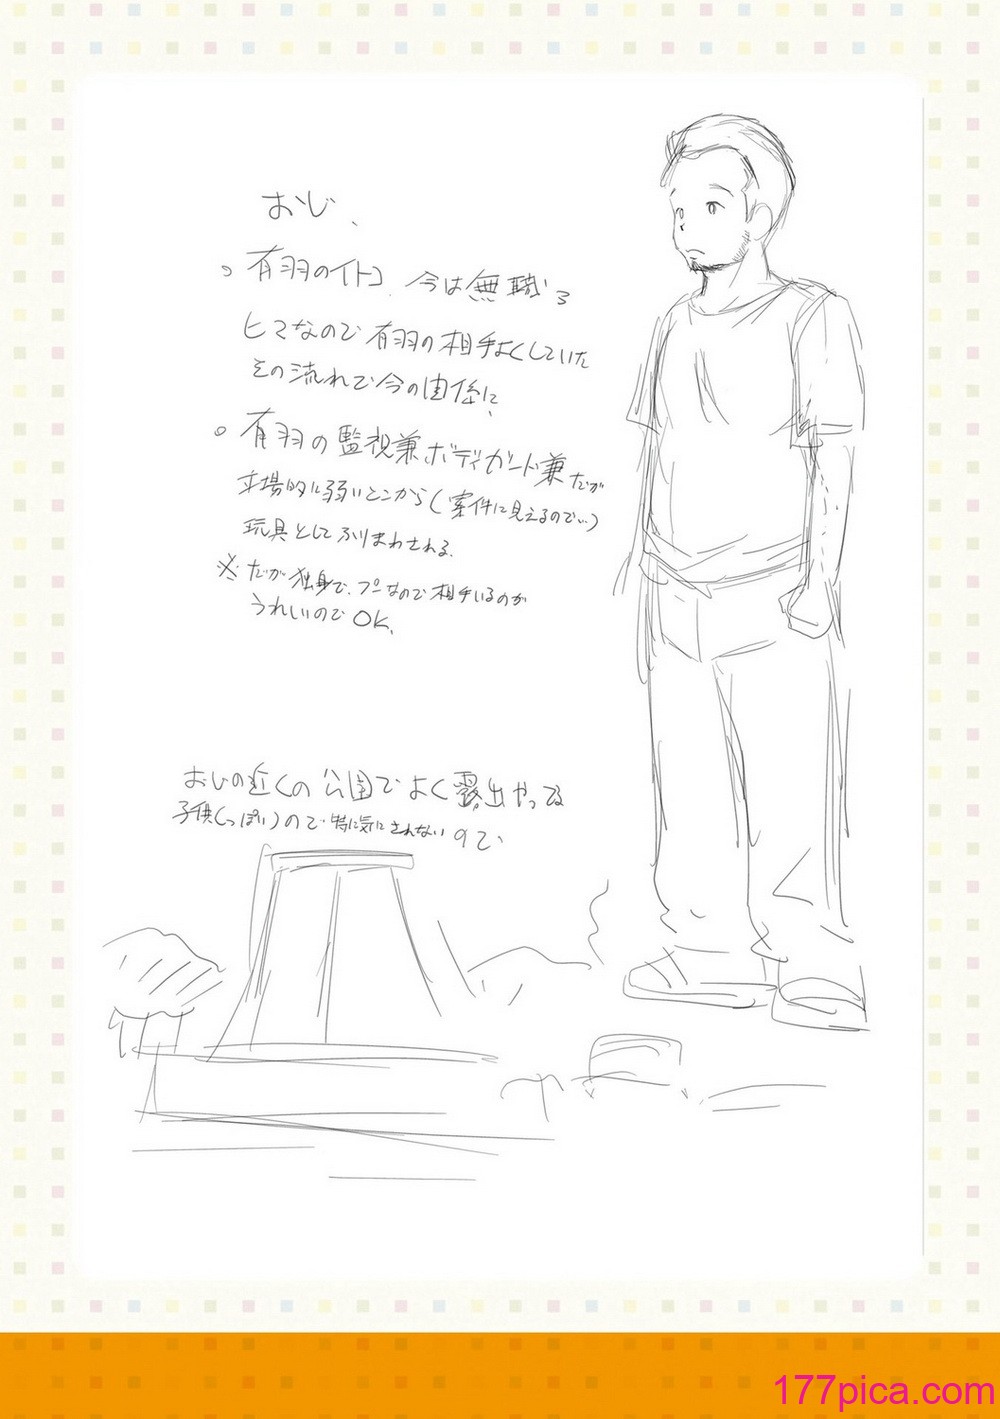 おじ、
○有羽のイトコ、今は無職で
ヒマなので有羽の相手よくしていた
その流れで今の関係に、
○有羽の監視兼ボディガード兼だが
立場的に弱いとこから(案件に見えるので…)
玩具としてふりまわされる、
※だが独身で、プーなので相手いるのが
うれしいのでOK、
おじの近くの公園でよく露出やってる
子供(っぽい)ので特に気にされないので
177pica.com